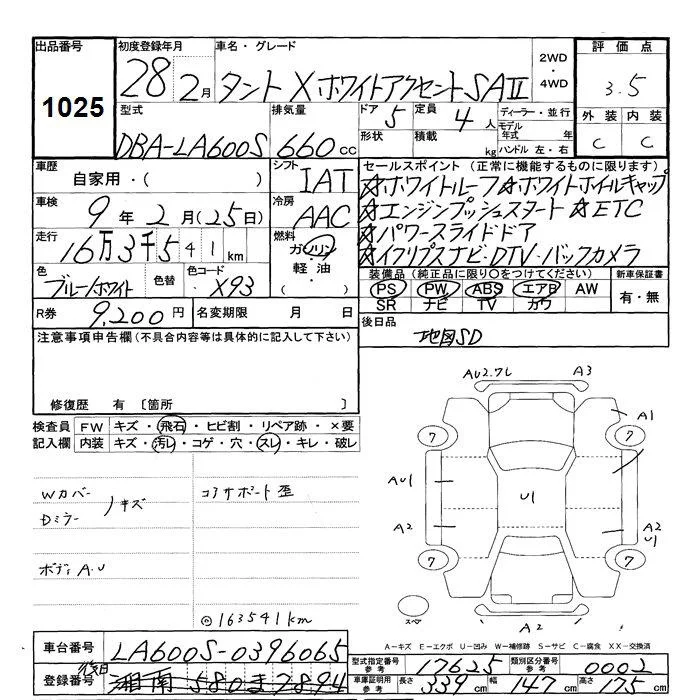 出品番号
1025
初度登録年月
28 2月
車名・グレード
タント X ホワイトアクセントSAⅡ
2WD
・
4WD
評価点
3.5
型式
DBA-LA600S
排気量
660cc
ドア
5
定員
4人
形状
積載
kg
ディーラー・並行
モデル年式 年
ハンドル 左・右
外装 内装
C C
車歴
自家用・( )
シフト
IAT
車検
9年2月(25日)
冷房
AAC
走行
16万3千541km
燃料
ガソリン
・
軽油
( ・ )
色
ブルー/ホワイト
色替
色コード
X93
R券
9,200円
名変期限 月 日
セールスポイント (正常に機能するものに限ります)
☆ホワイトルーフ☆ホワイトホイルキャップ
☆エンジンプッシュスタート☆ETC
☆パワースライドドア
☆イクリプスナビ・DTV・バックカメラ
装備品(純正品に限り〇をつけてください)
PS PW ABS エアB AW
SR ナビ TV カワ
新車保証書
有・無
後日品
地図SD
注意事項申告欄(不具合内容等は具体的に記入して下さい)
修復歴 有 〔箇所 〕
検査員記入欄
FW キズ・飛石・ヒビ割・リペア跡・×要
内装 キズ・汚レ・コゲ・穴・スレ・キレ・破レ
Wカバー
Dミラー
キズ
コアサポート歪
ボディA.U
◎163541km
AU2.7L A3
A1
7 7
AU1
U1
A2
A2
U1
7 7
スペ
A2
A-キズ E-エクボ U-凹み W-補修跡 S-サビ C-腐食 XX-交換済
車台番号
LA600S-0396065
登録番号
後日
湘南 580 ま 2894
型式指定番号
参考
17625
類別区分番号
参考
0002
車庫証明用
参考
長さ 339cm
幅 147cm
高さ 175cm